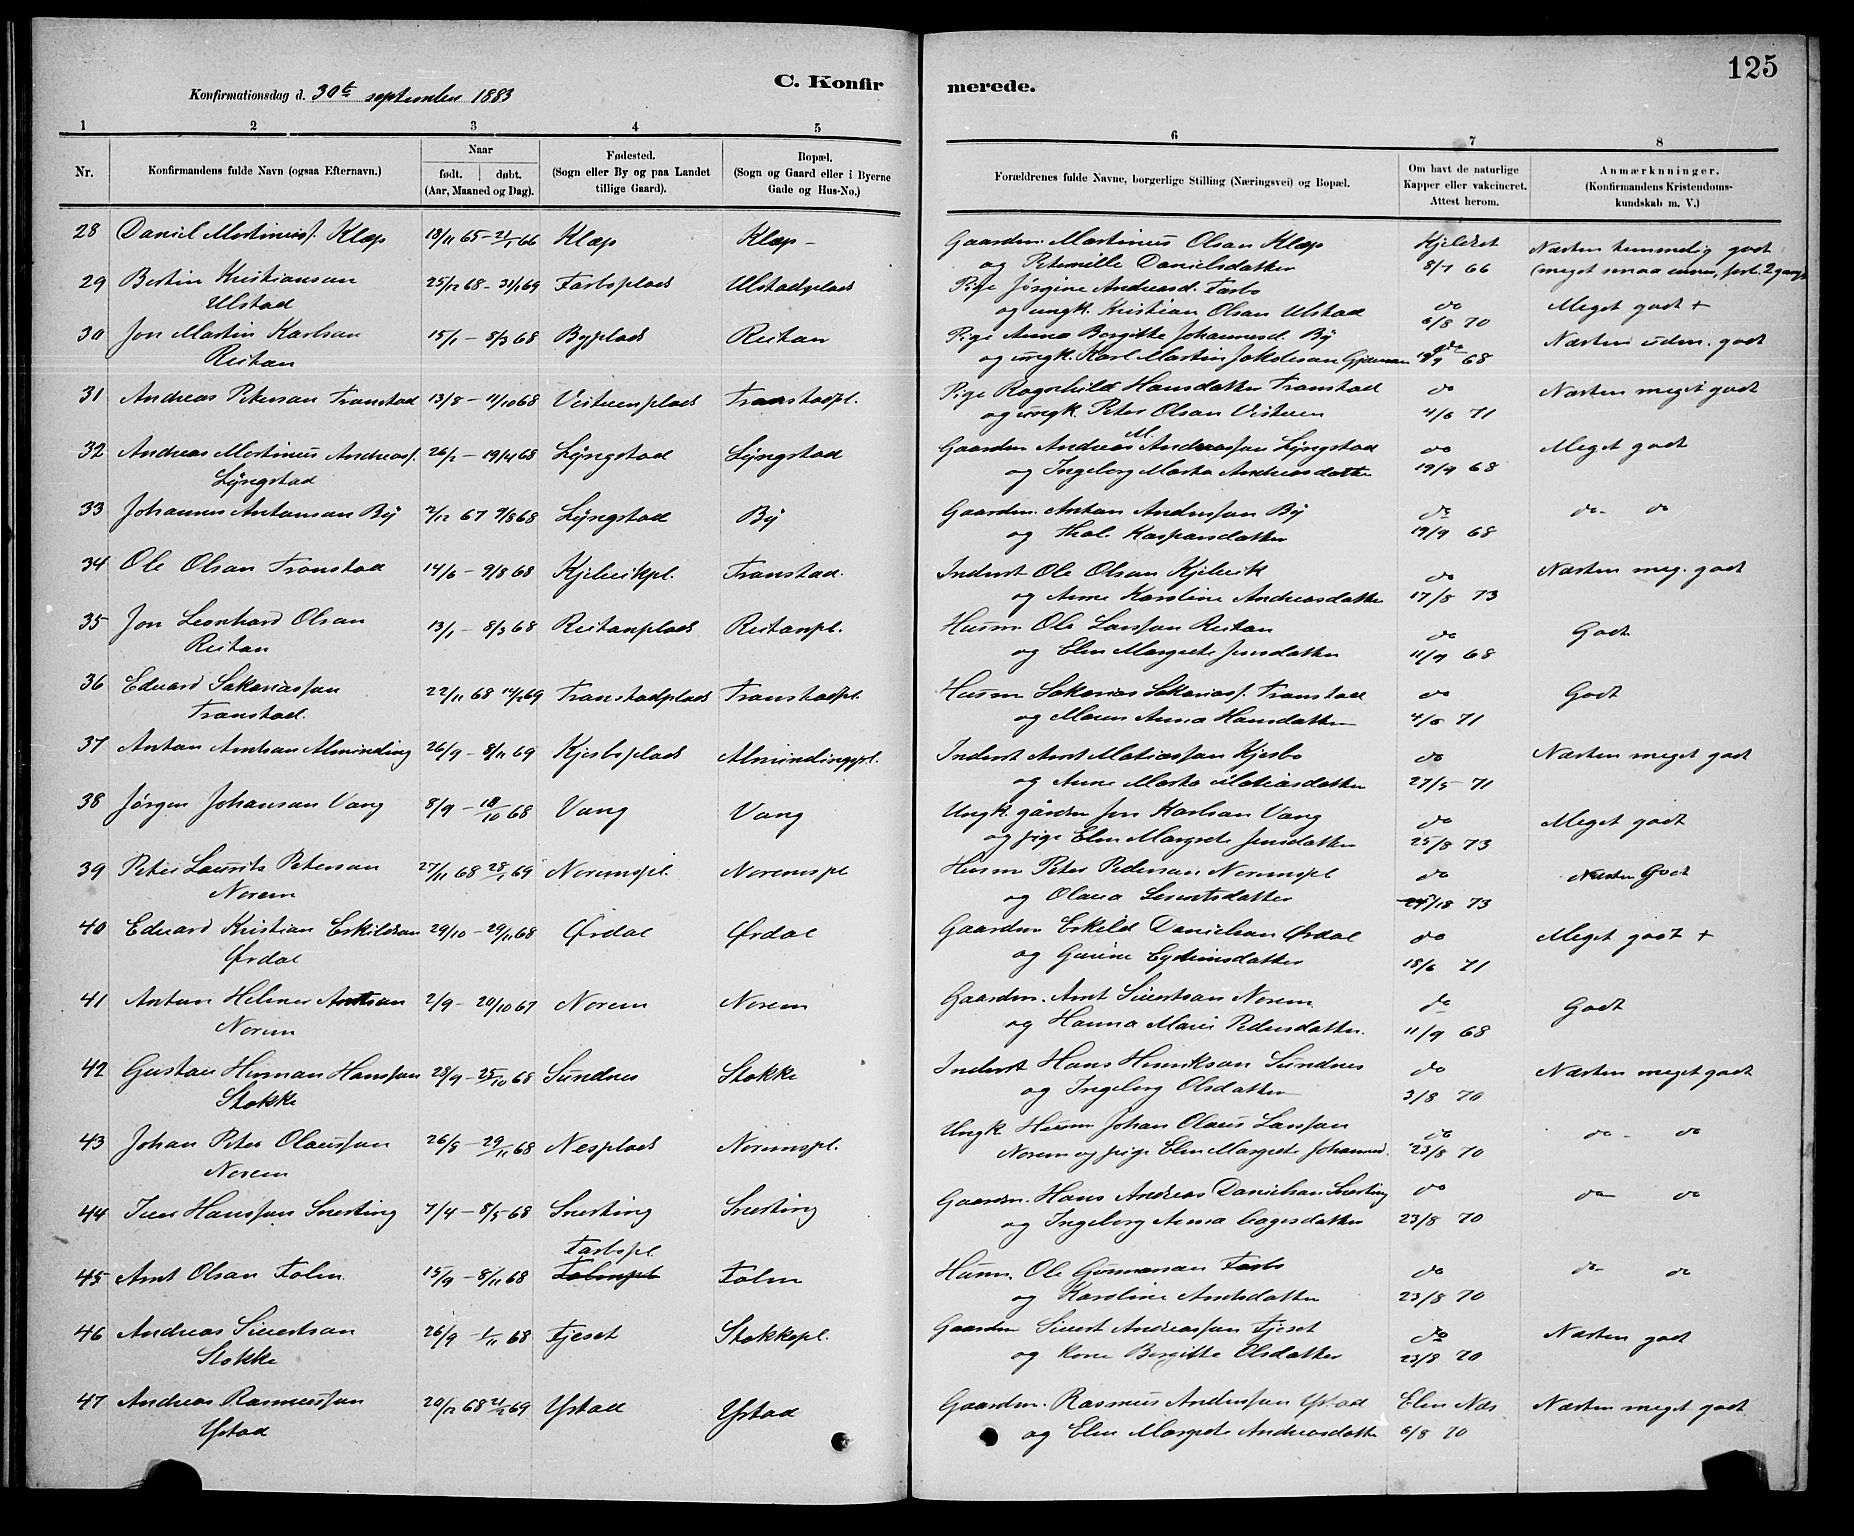 125
C. Konfirmerede.
Konfirmationsdag d. 30te september 1883
1 2 3 4 5 6 7 8
Nr. Konfirmandens fulde Navn (ogsaa Efternavn.) Naar født. døbt. (Aar, Maaned og Dag). Fødested. (Sogn eller By og paa Landet tillige Gaard). Bopæl. (Sogn og Gaard eller i Byerne Gade og Hus-No.) Forældrenes fulde Navne, borgerlige Stilling (Næringsvei) og Bopæl. Om havt de naturlige Kapper eller vakcineret. Attest herom. Anmærkninger. (Konfirmandens Kristendomskundskab m. V.)
28 Daniel Martinuss. Klæp 18/11 65 - 21/1 66 Klæp Klæp - Gaardm. Martinus Olsen Klæp Næsten temmelig godt
og Peternille Danielsdatter 8/7 66 (meget smaa evner, forb. 2 gange
29 Bertin Kristiansen 25/12 68 - 31/1 69 Farbsplads Ulstadplads Pige Jørgine Andreasd. Farbo
Ulstad og ungk. Kristian Olsen Ulstad do 6/8 70 Meget godt +
30 Jon Martin Karlsen 15/1 - 8/3 68 Byplads Reitan Pige Anna Bergitte Johannesd. By do Næsten uden. godt
Reitan og ungk. Karl Martin 68
31 Andreas Petersen Transtad 13/8 - 11/10 68 Vistvenplads Transtadpl. Pige Ragnhild Hansdatter Transtad do Næsten meget godt
og ungk. Peter Olsen Vistven 4/6 71
32 Andreas Martinus Andreass. 26/2 - 19/4 68 Lyngstad Lyngstad Gaardm Andreas M. Andreassen Lyngstad do Meget godt
Lyngstad og Ingeborg Marta Andreasdatter 19/9 68
33 Johannes Antonsen By 2/12 67 9/8 68 Lyngstad By Gaardm. Anton Anderssen By do do - do
og Kaspersdatter 19/9 68
34 Ole Olsen Transtad 14/6 - 9/8 68 Kjelvikpl. Transtad. Inderst Ole Olsen Kjelvik do Næsten meg. godt
og Anne Karoline Andreasdatter 17/8 73
35 Jon Leonhard Olsen 13/1 - 8/3 68 Reitanplads Reitanpl. Husm. Ole Larssen Reitan do Godt
Reitan og Elen Margrete Jensdatter 11/9 68
36 Edvard Sakariassen 22/11 68 14/2 69 Transtadplads Transtadpl. Husm Sakarias Sakariass. Transtad do Godt
Transtad. og Maren Anna Hansdatter 4/6 71
37 Anton Arntsen Alminding 26/9 - 8/11 69 Kjesboplads Almindingpl. Inderst Arnt Matiassen Kjesbo do Næsten meget godt
og Anne Marta Matiasdatter 27/5 - 71
38 Jørgen Johansen Vang 8/9 - 18/10 68 Vang Vang Ungk. gårdm Jon Karlsen Vang do Meget godt
og pige Elen Margrete Jensdatter 25/8 73
39 Peter Laurits Petersen 27/11 68 28/1 69 Noremspl. Noremspl Husm Peter Pedersen Noremspl do Næsten Godt
Norem og Olava Sivertsdatter 73
40 Edvard Kristian Erkildsen 29/10 - 29/11 68 Ørdal Ørdal Gaardm Erkild Danielsen Ørdal do Meget godt +
Ørdal og Gurine 18/6 71
41 Anton Helmer Arntsen 2/9 - 20/10 67 Norem Norem Gaardm. Arnt Sivertsen Norem do Godt
Norem og Hanna Marie Pedersdatter. 11/9 68
42 Gustav Herman Hanssen 28/9 - 25/10 68 Sundnes Stokke Inderst Hans Henriksen Sundnes do Næsten meget godt
Stokke og Ingeborg Olsdatter 3/8 70
43 Johan Peter Olaussen 26/8 - 29/11 68 Nesplads Noremspl. Ungk Husm Johan Olaus Larssen do do - do
Norem Norem og pige Elen Margrete Johannesd. 23/8 70
44 Iver Hanssen Snerting 7/4 - 8/5 68 Snerting Snerting Gaardm. Hans Andreas Danielsen Snerting do do do
og Ingeborg Anna 23/8 70
Farbspl.
45 Arnt Olsen Folm 15/9 - 8/11 68 Folmspl Folm Husm. Ole Gunnarsen Farbo do do - do
og Karoline Arntsdatter 23/8 70
46 Andreas Sivertsen 26/9 - 1/11 68 Fjeset Stokkepl. Gaardm Sivert Andreassen Fjeset do Næsten godt
Stokke og kone Bergitte Olsdatter 23/8 70
47 Andreas Rasmussen 20/12 68 21/2 69 Ystad Ystad Gaardm. Rasmus Anderssen Ystad Elen Næs Næsten meget godt
Ystad og Elen Margrete Andreasdatter 6/8 70